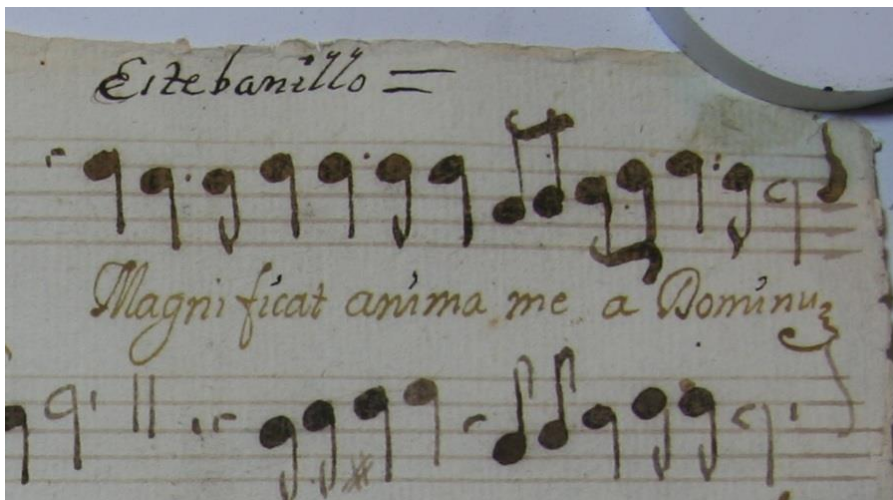 Estebanillo =
Magnificat anima me a Dominuz